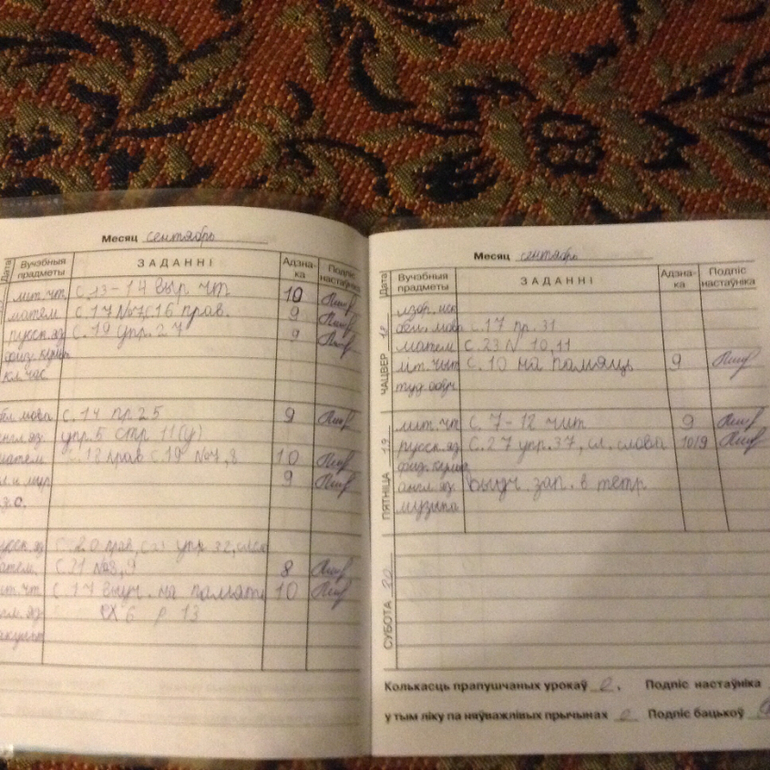 Месяц сентябрь
Дата Вучэбныя прадметы ЗАДАННІ Адзнака Подпіс настаўніка
лит. чт. с. 13-14 выр. чт. 10
матем с. 17 №7, с 16 прав. 9
русск. яз. с. 19 упр. 27 9
физ. культ
кл. час
бел. мова с. 14 пр. 25 9
англ. яз. упр. 5 стр. 11 (у)
матем с. 18 прав с 19 №7,8 10
9
русск. яз с. 20 прав, упр 32,
матем. с 21 №8,9 8
лит. чт. с. 17 выуч. на память 10
англ. яз. ex 6 p 13
Месяц сентябрь
Дата Вучэбныя прадметы ЗАДАННІ Адзнака Подпіс настаўніка
ЧАЦВЕР 18
изобр. иск
бел. мова с. 17 пр. 31
матем с. 23 № 10,11
літ. чыт с. 10 на памяць 9
труд. обуч
ПЯТНІЦА 19
лит. чт с. 7-12 чит 9
русск. яз с. 27 упр. 37, сл. слова 10/9
физ. культ
англ. яз. выуч. зап. в тетр
музыка
СУБОТА 20
Колькасць прапушчаных урокаў 0, Подпіс настаўніка
у тым ліку па няўважлівых прычынах 0 Подпіс бацькоў